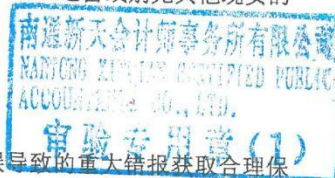 南通新天会计师事务所有限公司
CERTIFIED PUBLIC
ACCOUNTANTS CO., LTD.
审验专用章(1)
导致的重大错报获取合理保